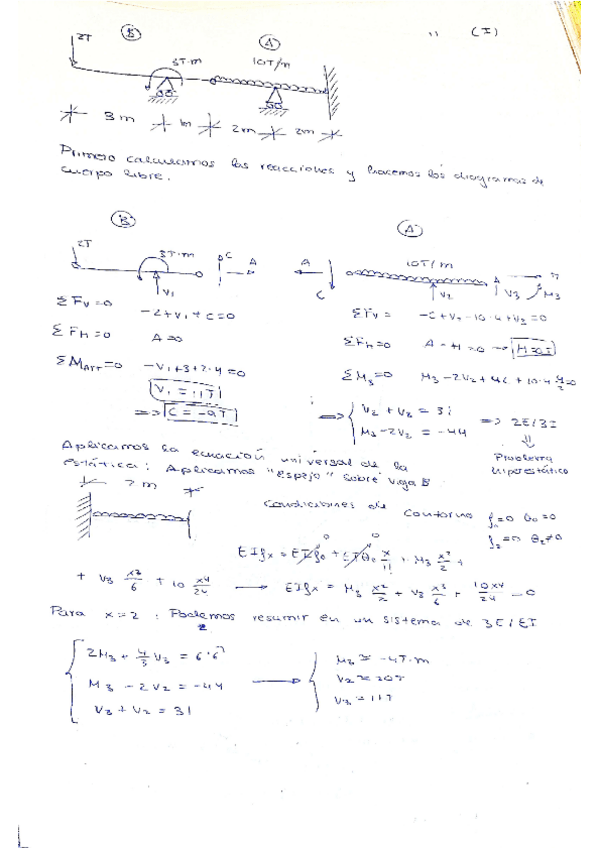 (I)
2T B A
3T·m 10T/m
3m 1m 2m 2m
Primero calculamos las reacciones y hacemos los diagramas de
cuerpo libre.
B A
2T 3T·m C A A 10T/m
V1 C V2 V3 M3
ΣFV=0 -2+V1+C=0 ΣFV= -C+V2-10·4+V3=0
ΣFH=0 A=0 ΣFH=0 A-H=0 → H=0
ΣMart=0 -V1+3+2·4=0 ΣM3=0 M3-2V2+4C+10·4·4/2=0
V1=11T
⇒ C=-9T
⇒ { V2+V3=31 ⇒ 2E/3I
M3-2V2=-44 Problema
hiperestático
Aplicamos la ecuación universal de la
estática: Aplicamos "Espejo" sobre viga B
2m
Condiciones de contorno f1=0 θ0=0
f2=0 θ2≠0
EIfx=EIf0+EIθ0 x/1!+M3 x²/2+
+V3 x³/6+10 x⁴/24 → EIfx=M3 x²/2+V3 x³/6+10x⁴/24=0
Para x=2: Podemos resumir en un sistema de 3E/3I
2M3+4/3 V3=6'6
M3-2V2=-44
V3+V2=31
M3≈-4T·m
V2≈20T
V3≈11T